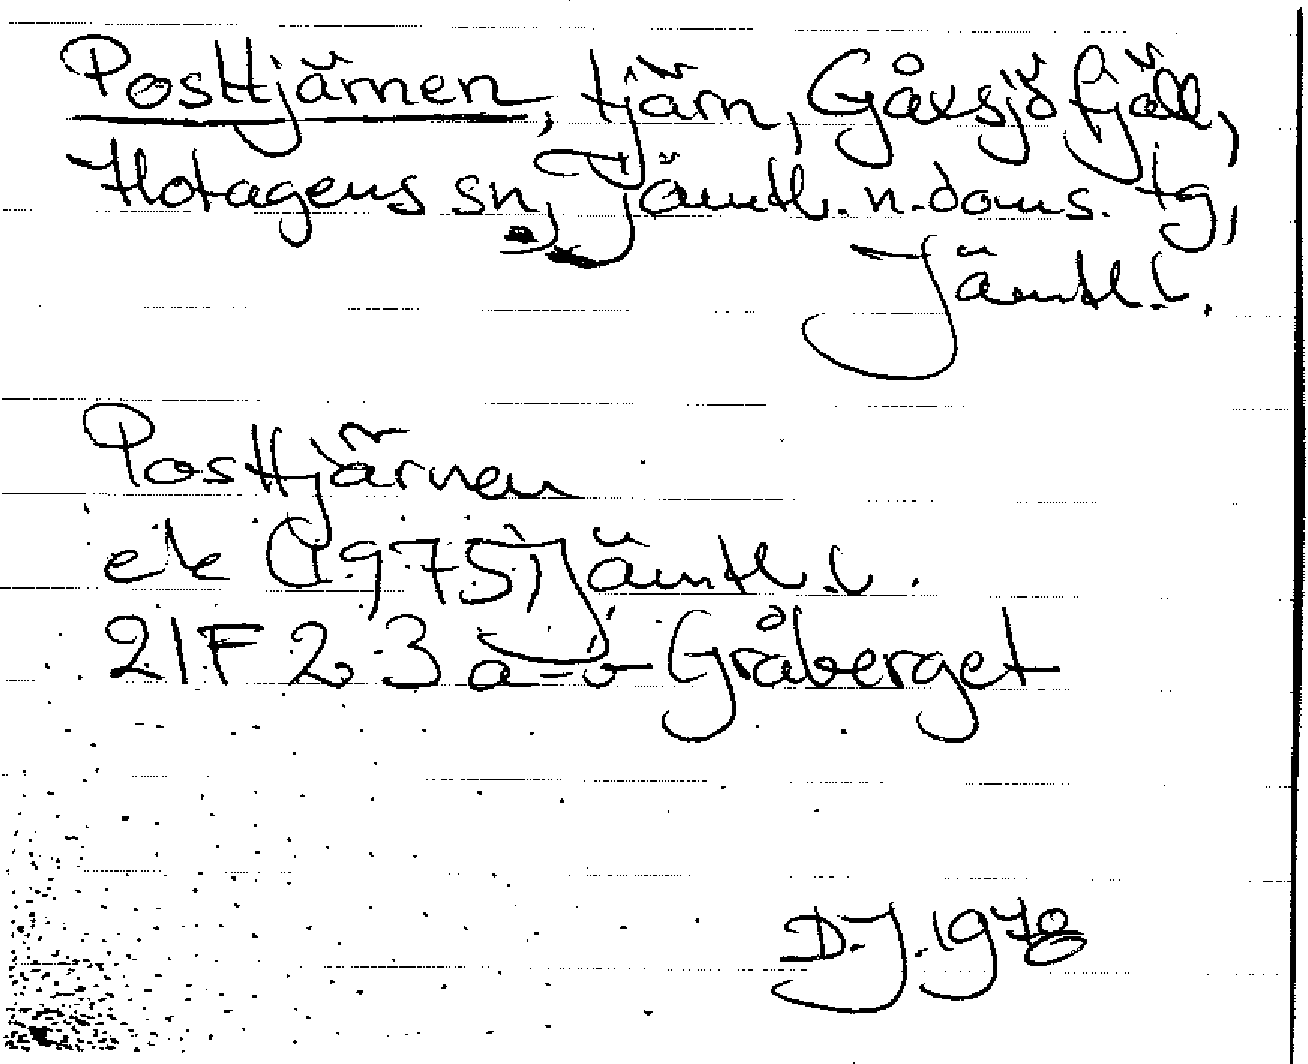 Posttjärnen, tjärn, Gåxsjö fjäll,
Hotagens sn, Jämtl. n. doms. tg,
Jämtl. l.
Posttjärnen
ek (1975) Jämtl. l.
21F 2-3 a-b Gråberget
D.J. 1978